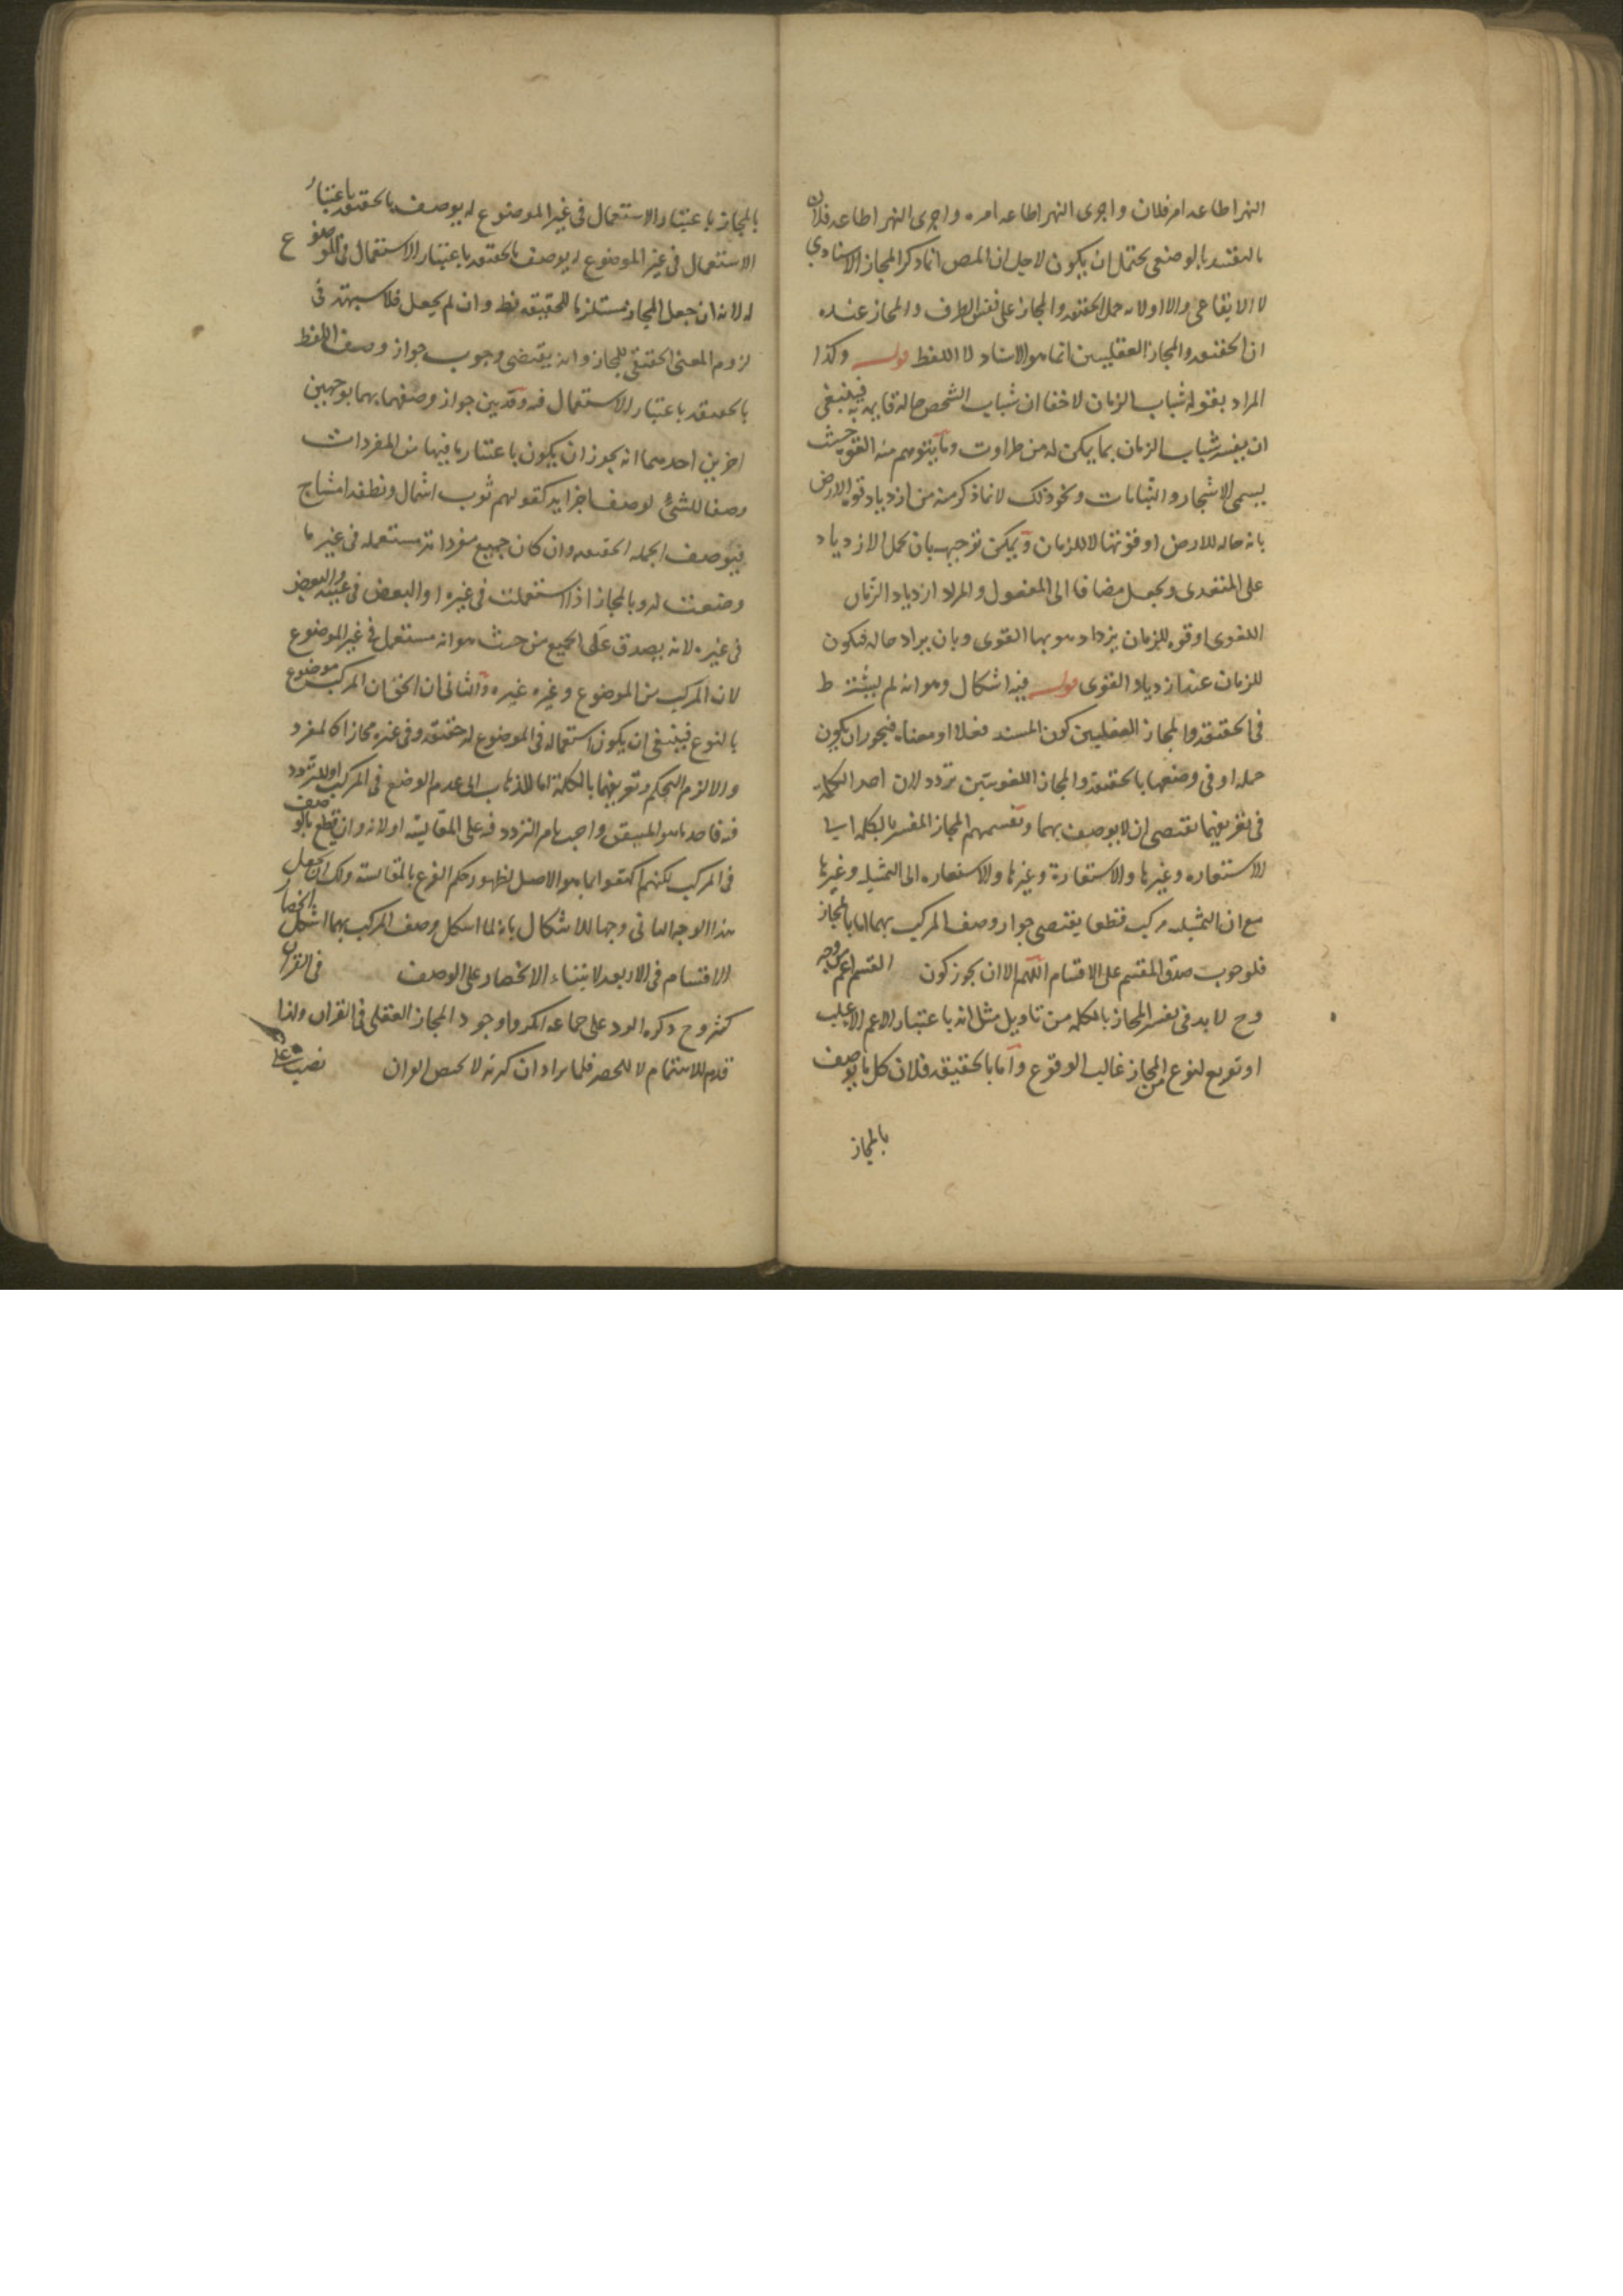 النهر اطاعه امر فلان واجرى النهر اطاعه امره واجرى النهر اطاعه فلان
بالوضعى يحتمل ان يكون لاجل ان المص انما ذكر المجاز الاسنادي
لا الايقاعى والا اولانه حمل الحقيقه والمجاز على نفس الطرف والمجاز عنده
ان الحقيقه والمجاز العقليين انما هو الاسناد لا اللفظ قوله وكذا
المراد بقوله شباب الزمان لا خفا ان شباب الشخص حاله قايمه به فينبغى
ان يفسر شباب الزمان بما يمكن له من طراوت وما يتوهم منه القوه حيث
يسمى الاشجار والنباتات ونحو ذلك لا بما ذكر منه من ازدياد قوه الارض
بانه حاله للارض او قوتها لا للزمان ويمكن توجيهه بان يحمل الازدياد
على المتعدى ويجعل مضافا الى المفعول والمراد ازدياد الزمان
القوى او قوه للزمان يزداد هو بها القوى وبان يراد حاله فيكون
للزمان عند ازدياد القوى قوله فيه اشكال وهو انه لم يشترط
فى الحقيقه والمجاز العقليين كون المسند فعلا او معناه فيجوز ان يكون
جمله او فى وصفها بالحقيقه والمجاز اللغويين تردد لان اخذ الكلمه
فى تعريفهما يقتضى ان لا يوصف بهما وتقسيمهم المجاز المفسر بالكلمه الى
الاستعاره وغيرها والاستعارة وغيرها والاستعاره الى التمثيل وغيرها
مع ان التمثيل مركب قطعا يقتضى جواز وصف المركب بهما اما بالمجاز
فلوجوب صدق المقسم على الاقسام اللهم الا ان يجوز كون القسم اعم من وجه
وح لا بد فى تفسير المجاز بالكلمه من تاويل مثل انه باعتبار الاعم الاغلب
او لنوع من المجاز غالب الوقوع واما بالحقيقه فلان كل ما يوصف
بالمجاز
بالمجاز باعتبار الاستعمال فى غير الموضوع له يوصف بالحقيقه باعتبار
الاستعمال فى غير الموضوع له يوصف بالحقيقه باعتبار الاستعمال فى الموضوع
له لانه ان جعل المجاز مستلزما للحقيقه فظ وان لم يجعل فلا شبهة فى
لزوم المعنى الحقيقى للمجاز وانه يقتضى وجوب جواز وصف اللفظ
بالحقيقه باعتبار الاستعمال فيه وقد يبين جواز وصفهما بهما بوجهين
اخرين احدهما انه يجوز ان يكون باعتبار ما فيها من المفردات
وصفا للشئ لوصف اجزايه كقولهم ثوب اشمال ونطفه امشاج
فيوصف الجمله الحقيقه وان كان جميع مفرداته مستعمله فى غير ما
وضعت له وبالمجاز اذا استعملت فى غيره او البعض فى عينه والبعض
فى غيره لانه يصدق على الجميع من حيث هو انه مستعمل فى غير الموضوع
لان المركب من الموضوع وغيره غيره والثانى ان الحق ان المركب موضوع
بالنوع فينبغى ان يكون استعماله فى الموضوع له حقيقه وفى غيره مجازا كالمفرد
والا لزم التحكم وتعريفهما بالكلمة اما للذهاب الى عدم الوضع فى المركب او للتردد
فيه قاصدا هو المتيقن واجب امر التردد فيه على المقايسه اولانه وان قطع بالوصف
فى المركب لكنهم اكتفوا بما هو الاصل لظهور حكم الفرع بالمقايسة ولك ان تجعل
هذا الوجه الثانى وجها للاشكال بانه لما اشكل وصف المركب بهما اشكل انحصار
الاقسام فى الاربعه لابتناء الانحصار على الوصف فى القران
كثير وح ذكره الرد على جماعه انكروا وجود المجاز العقلى فى القران ولذا
قدم للاهتمام لا للحصر فلما يراد ان كثرته لا يخص القران